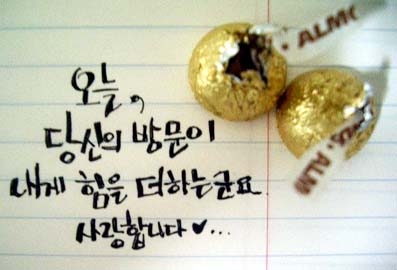 오늘,
당신의 방문이
내게 힘을 더하는군요
사랑합니다 ♥...
ALM
ALM